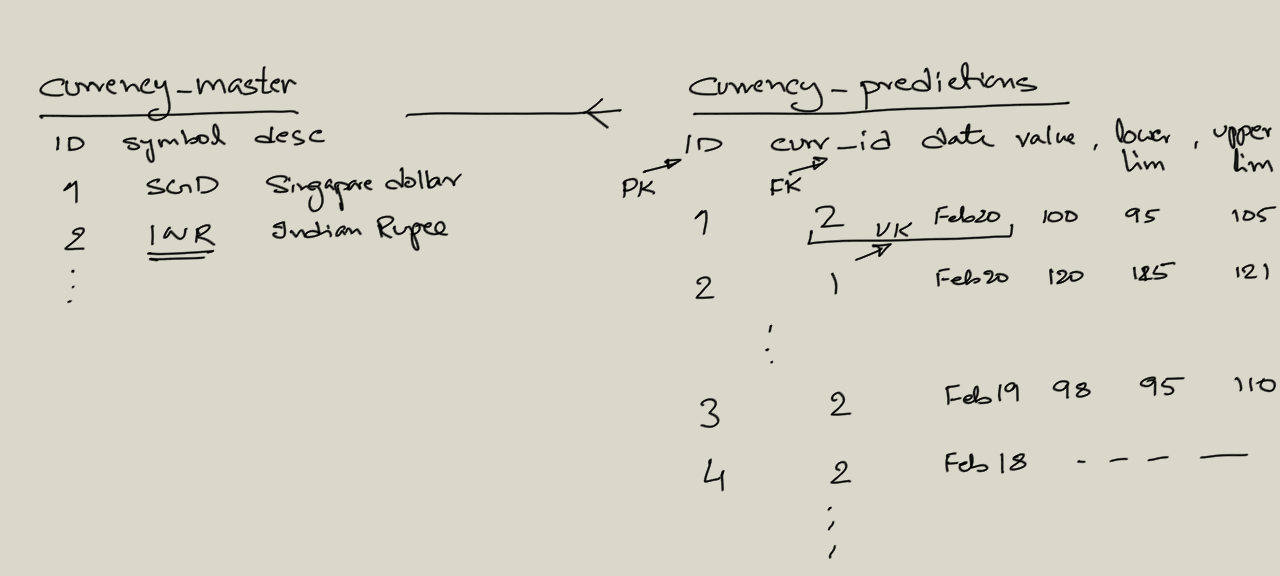 currency_master
ID symbol desc
1 SGD Singapore dollar
2 INR Indian Rupee
⋮
currency_predictions
ID curr_id date value , lower lim , upper lim
PK FK
1 2 Feb20 100 95 105
UK
2 1 Feb20 120 121
⋮
3 2 Feb19 98 95 110
4 2 Feb18 - - - —
⋮